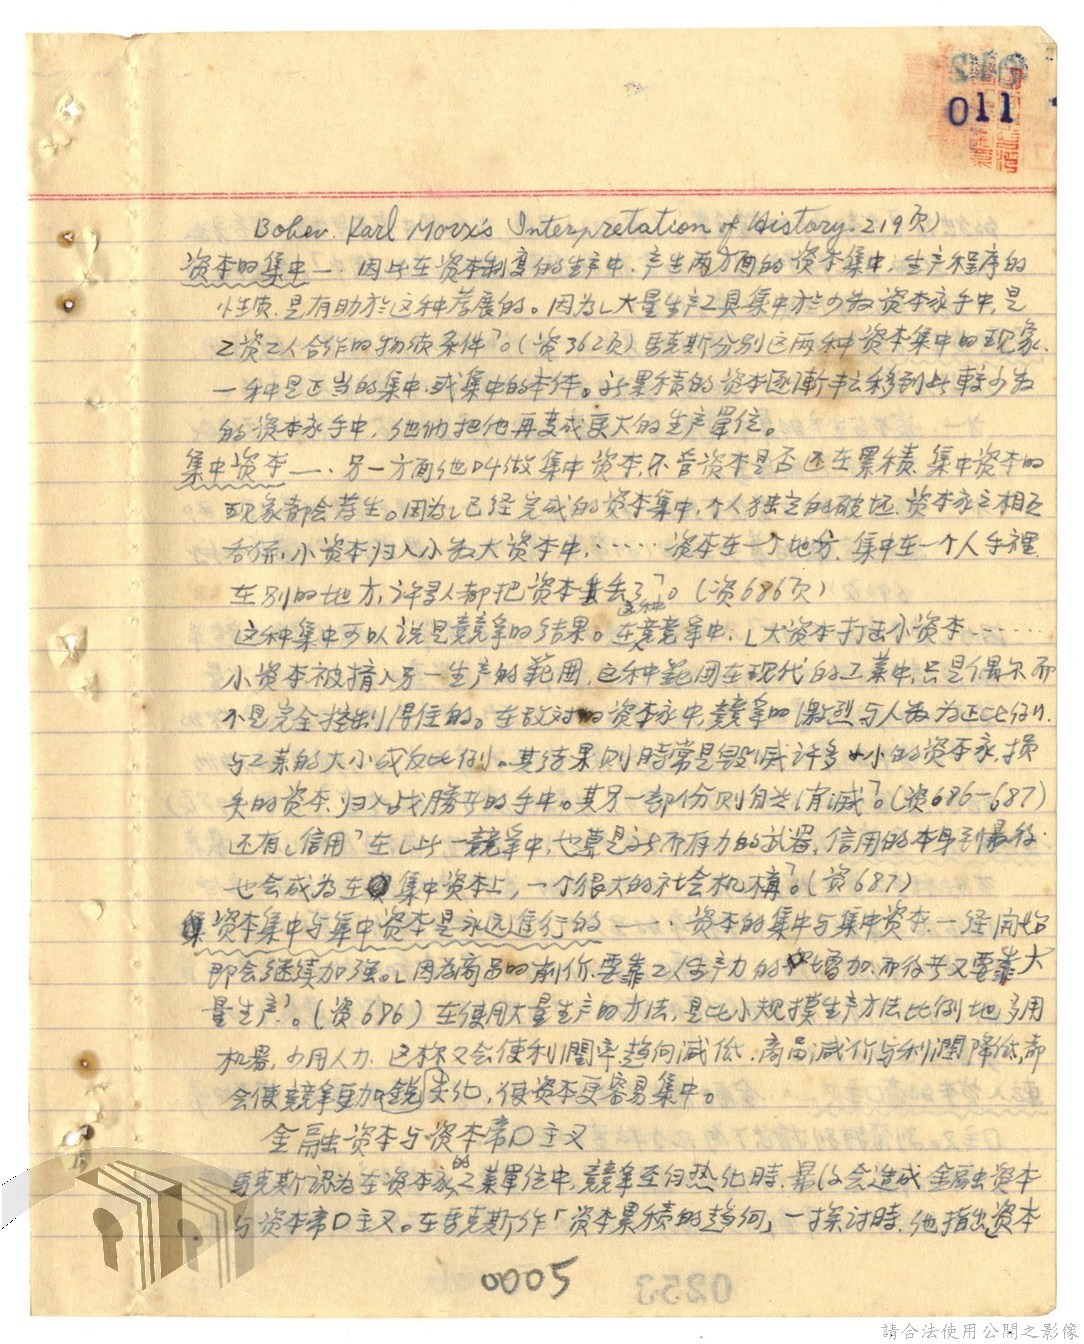 011
Bober. Karl Marx's Interpretation of History. 219页)
资本的集中——. 因此在资本制度的生产中. 产生两方面的资本集中. 生产程序的
性质. 是有助於这种发展的。因为「大量生产工具集中於少数资本家手中, 是
工资工人合作的物质条件」。(资362页) 马克斯分别这两种资本集中的现象.
一种是正当的集中. 或集中的本体。所累积的资本逐渐转移到比较少数
的资本家手中, 他们把他再变成更大的生产单位。
集中资本——. 另一方面他叫做集中资本. 不管资本是否还在累积. 集中资本的
现象都会发生。因为「已经完成的资本集中, 个人独立的破坏. 资本家之相互
吞併, 小资本归入少数大资本中, ······ 资本在一个地方. 集中在一个人手裡.
在别的地方, 许多人都把资本丢了」。(资686页)
这种集中可以说是竞争的结果。在这种竞争中,「大资本打击小资本······
小资本被揹入另一生产的範围, 这种範围在现代的工业中, 只是偶尔而
不是完全控制得住的。在敌对的资本家中, 竞争的激烈与人数为正比例.
与工业的大小成反比例。其结果则時常是毁灭许多小的资本家, 损
失的资本. 归入战勝者的手中。其另一部份则自然消滅」。(资686-687)
还有「信用」在「此一竞争中, 也算是新而有力的武器, 信用的本身到最後.
也会成为在集中资本上, 一个很大的社会机構」。(资687)
资本集中与集中资本是永远进行的——·· 资本的集中与集中资本. 一经开始
即会继续加强。「因为商品的削价. 要靠工人生产力的增加. 而後者又要靠大
量生产」。(资686) 在使用大量生产的方法, 是比小规模生产方法比例地多用
机器. 少用人力. 这样又会使利潤率趋向减低. 商品减价与利潤降低, 都
会使竞争更加尖锐化, 使资本更容易集中。
金融资本与资本帝口主义
马克斯认为在资本家的工业单位中, 竞争至白热化時. 最後会造成金融资本
与资本帝口主义。在马克斯作「资本累积的趋向」一探讨時. 他指出「资本
0005
0253
請合法使用公開之影像